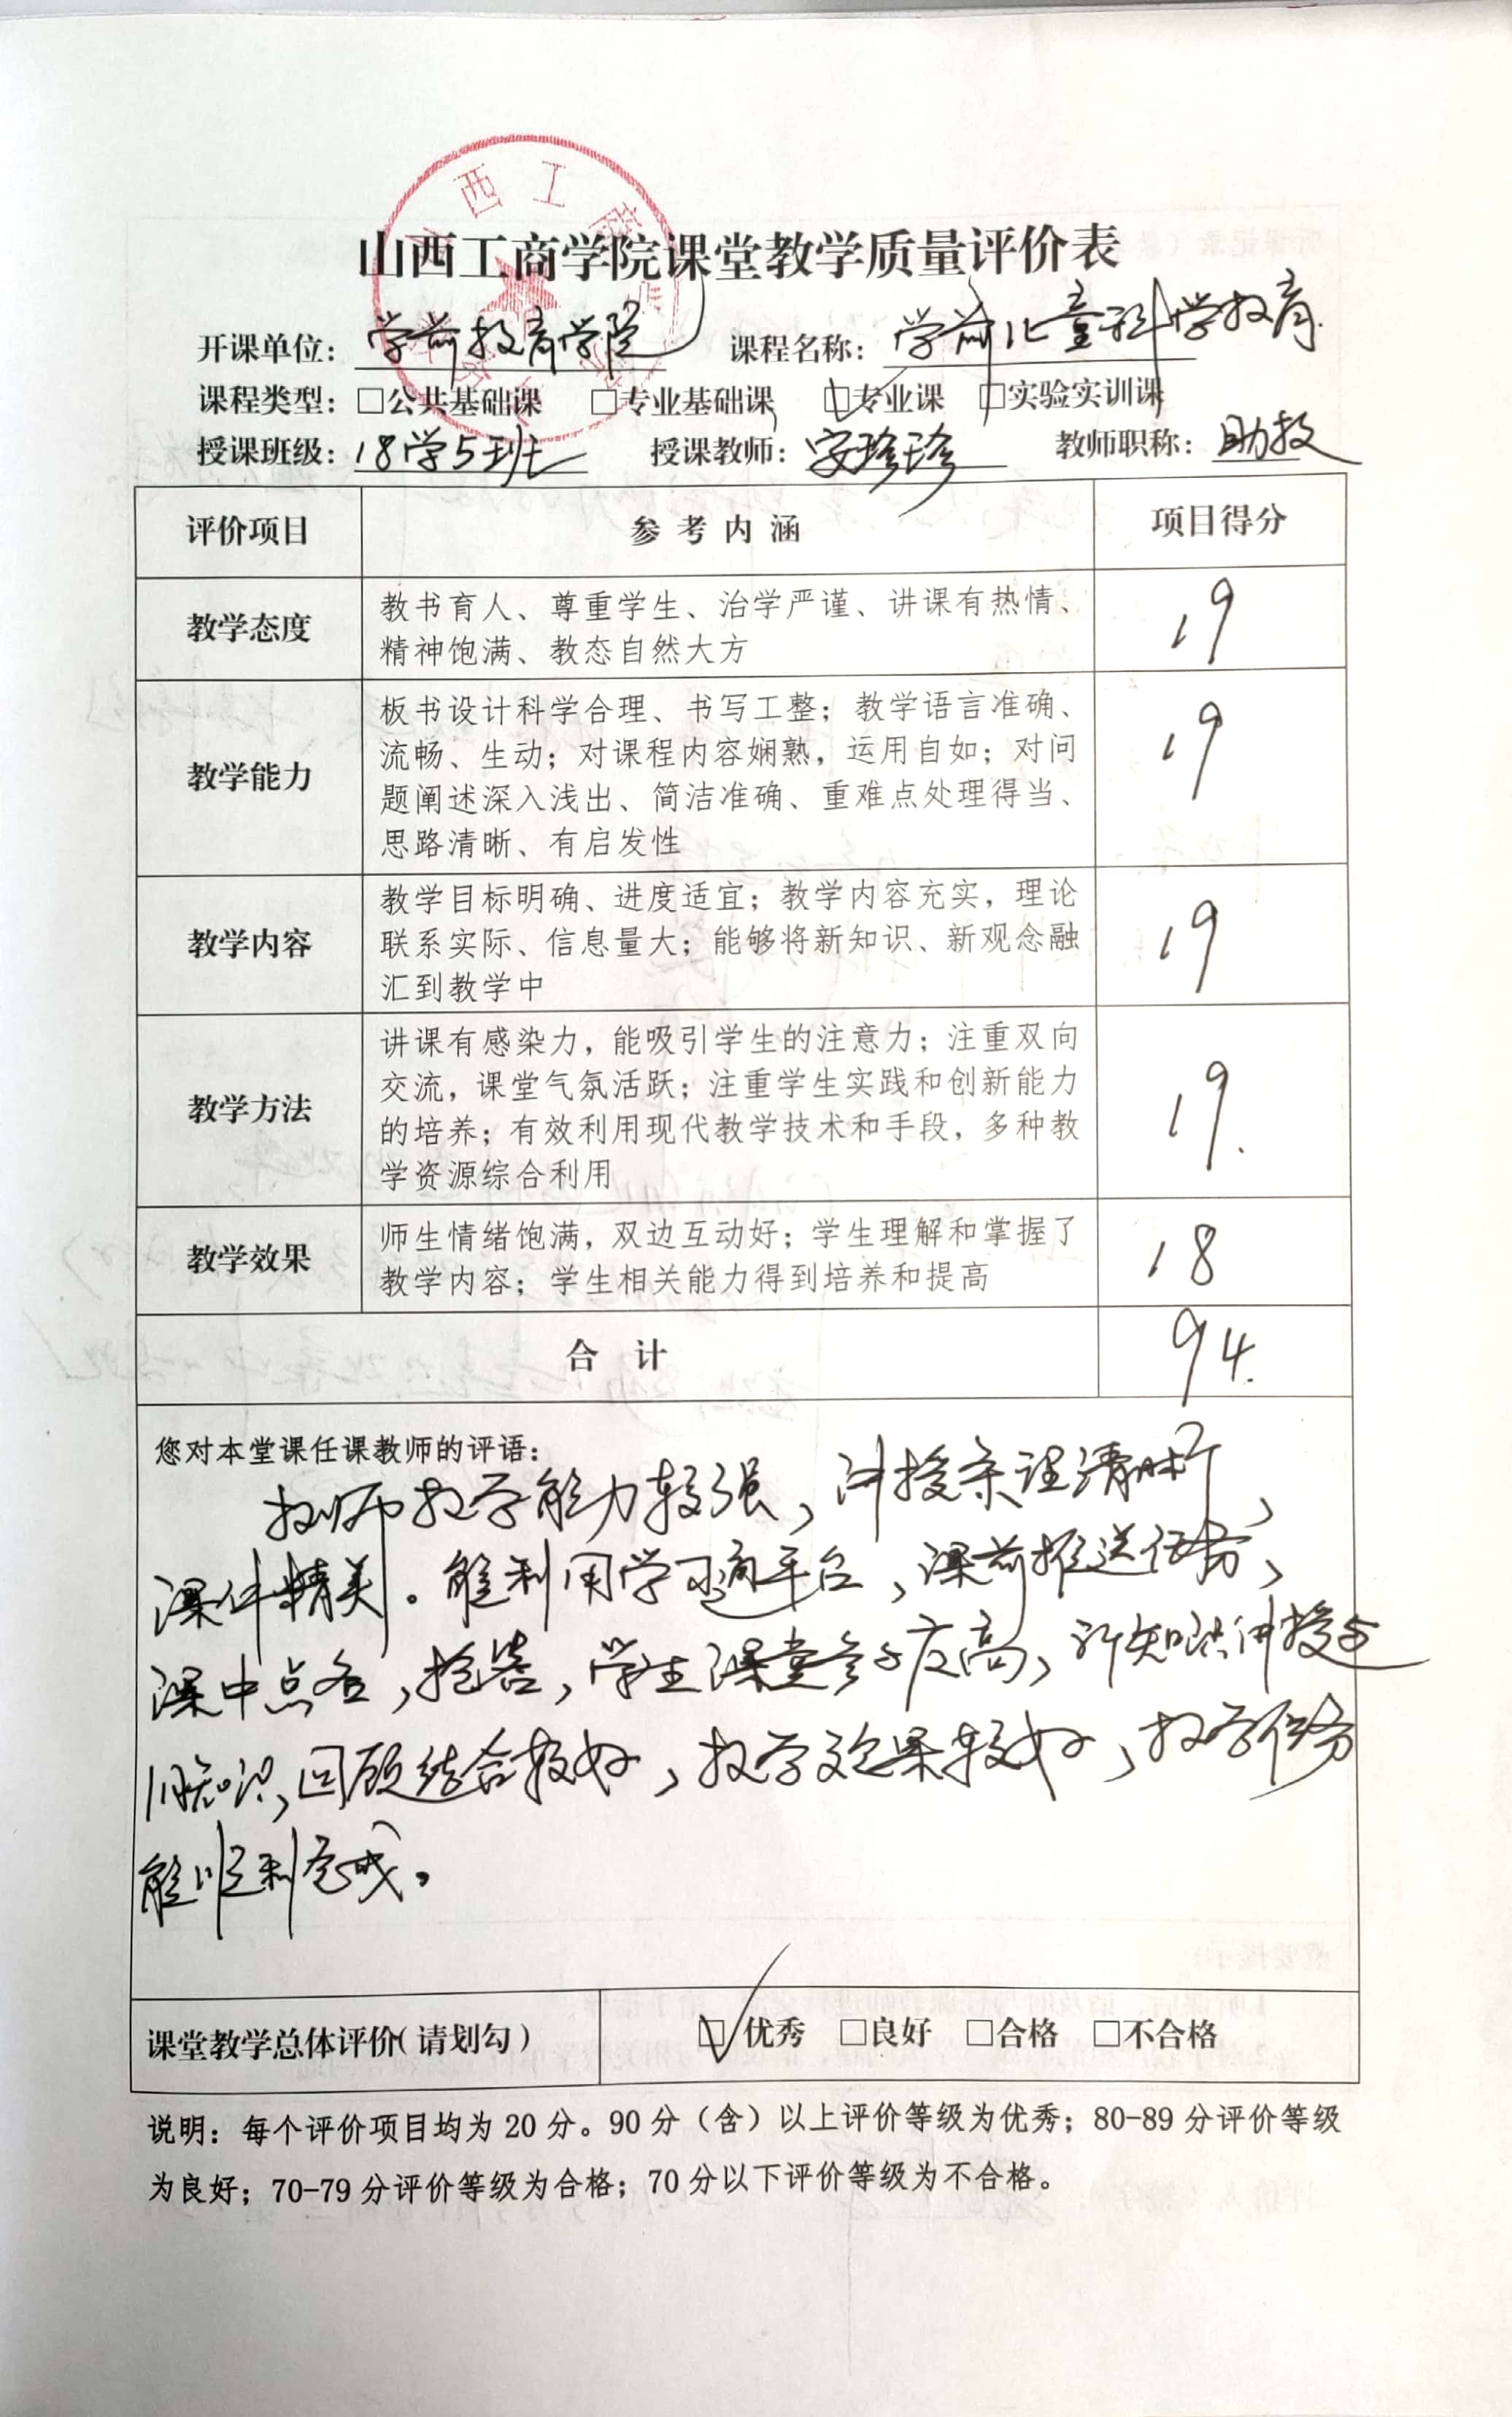 山西工商学院课堂教学质量评价表
开课单位：学前教育学院 课程名称：学前儿童科学教育
课程类型：□公共基础课 □专业基础课 ☑专业课 □实验实训课
授课班级：18学5班 授课教师：安珍珍 教师职称：助教
评价项目 参考内涵 项目得分
教学态度 教书育人、尊重学生、治学严谨、讲课有热情、
精神饱满、教态自然大方 19
教学能力 板书设计科学合理、书写工整；教学语言准确、
流畅、生动；对课程内容娴熟，运用自如；对问
题阐述深入浅出、简洁准确、重难点处理得当、
思路清晰、有启发性 19
教学内容 教学目标明确、进度适宜；教学内容充实，理论
联系实际、信息量大；能够将新知识、新观念融
汇到教学中 19
教学方法 讲课有感染力，能吸引学生的注意力；注重双向
交流，课堂气氛活跃；注重学生实践和创新能力
的培养；有效利用现代教学技术和手段，多种教
学资源综合利用 19.
教学效果 师生情绪饱满，双边互动好；学生理解和掌握了
教学内容；学生相关能力得到培养和提高 18
合计 94.
您对本堂课任课教师的评语：
教师教学能力较强，讲授条理清晰，
课件精美。能利用学习通平台，课前推送任务，
课中点名，抢答，学生课堂参与度高，新知识讲授与
旧知识，回顾结合较好，教学效果较好，教学任务
能顺利完成。
课堂教学总体评价（请划勾） ☑优秀 □良好 □合格 □不合格
说明：每个评价项目均为20分。90分（含）以上评价等级为优秀；80-89分评价等级
为良好；70-79分评价等级为合格；70分以下评价等级为不合格。